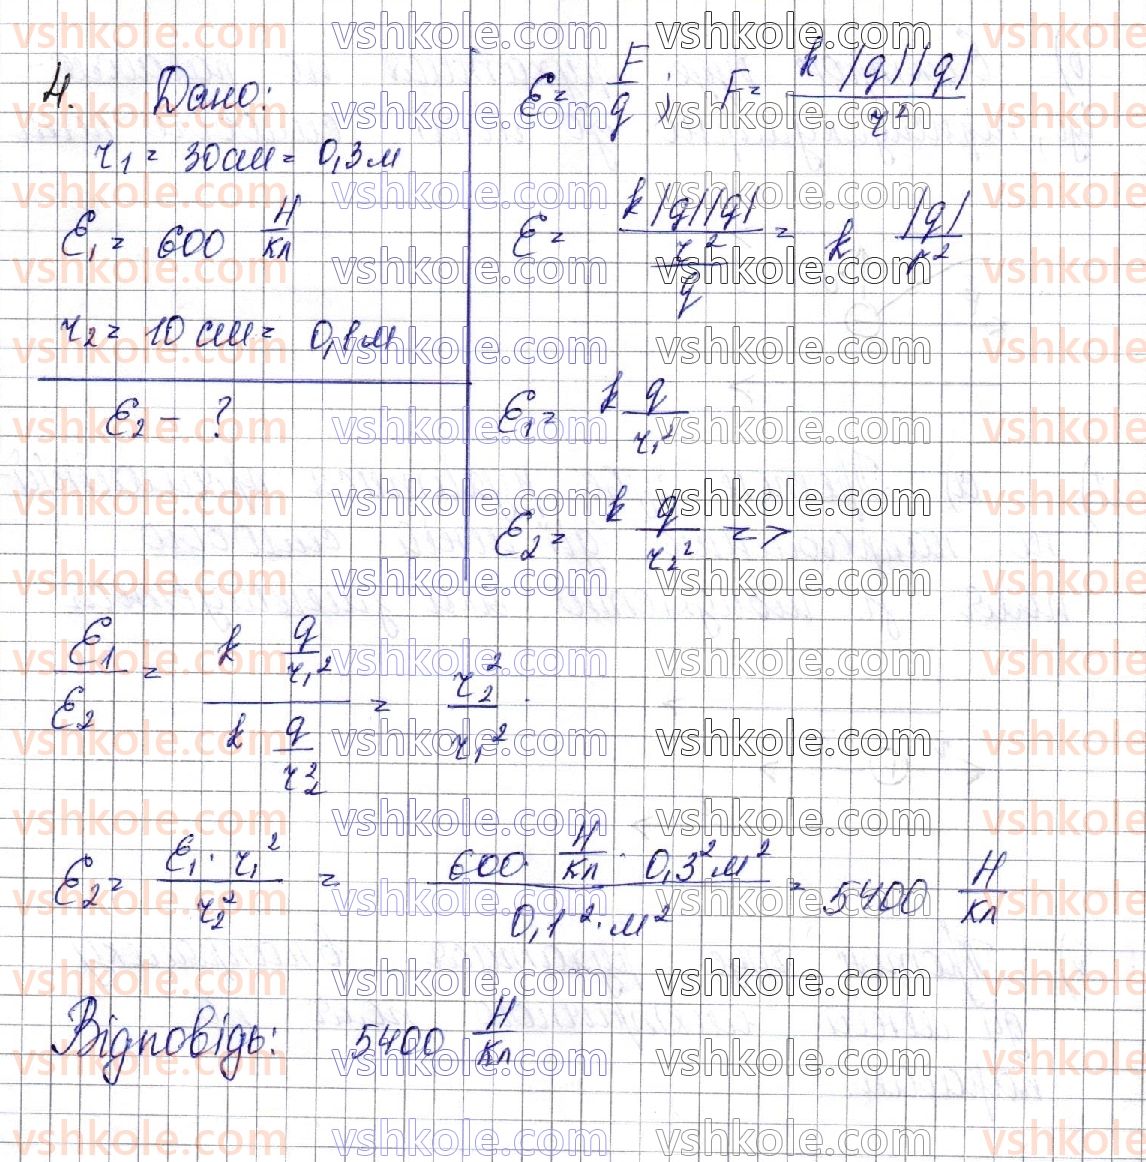 4. Дано:
r₁ = 30см = 0,3м
E₁ = 600 Н/Кл
r₂ = 10см = 0,1м
E₂ - ?
E = F/q; F = k|q||q|/r²
E = k|q||q|/r²/q = k |q|/r²
E₁ = k q/r₁²
E₂ = k q/r₂² =>
E₁/E₂ = k q/r₁² / k q/r₂² = r₂²/r₁².
E₂ = E₁·r₁²/r₂² = 600 Н/Кл · 0,3² м² / 0,1²·м² = 5400 Н/Кл
Відповідь: 5400 Н/Кл
vshkole.com